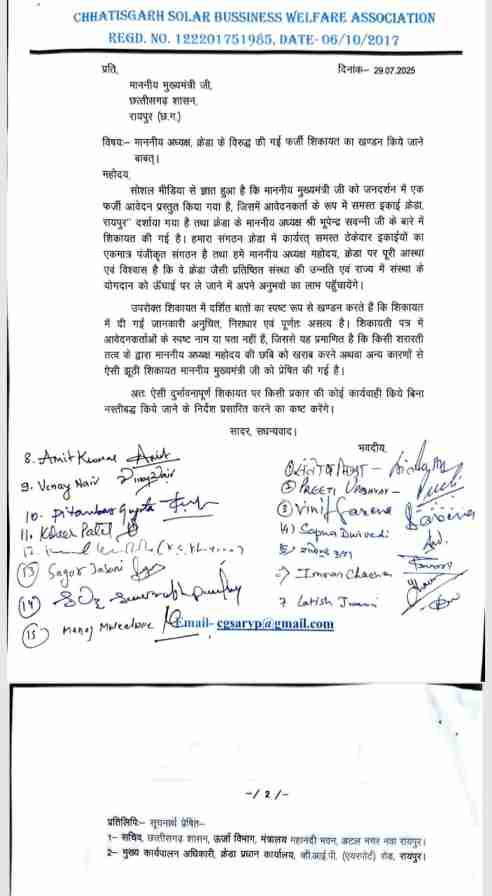 CHHATISGARH SOLAR BUSSINESS WELFARE ASSOCIATION
REGD. NO. 122201751985, DATE- 06/10/2017
प्रति,
दिनांक– 29.07.2025
माननीय मुख्यमंत्री जी,
छत्तीसगढ़ शासन,
रायपुर (छ.ग.)
विषयः– माननीय अध्यक्ष, क्रेडा के विरुद्ध की गई फर्जी शिकायत का खण्डन किये जाने
बाबत्।
महोदय,
सोशल मीडिया से ज्ञात हुआ है कि माननीय मुख्यमंत्री जी को जनदर्शन में एक
फर्जी आवेदन प्रस्तुत किया गया है, जिसमें आवेदनकर्ता के रूप में समस्त इकाई क्रेडा,
रायपुर" दर्शाया गया है तथा क्रेडा के माननीय अध्यक्ष श्री भूपेन्द्र सवन्नी जी के बारे में
शिकायत की गई है। हमारा संगठन क्रेडा में कार्यरत् समस्त ठेकेदार इकाईयों का
एकमात्र पंजीकृत संगठन है तथा हमे माननीय अध्यक्ष महोदय, क्रेडा पर पूरी आस्था
एवं विश्वास है कि वे क्रेडा जैसी प्रतिष्ठित संस्था की उन्नति एवं राज्य में संस्था के
योगदान को ऊँचाई पर ले जाने में अपने अनुभवों का लाभ पहुँचायेंगे।
उपरोक्त शिकायत में दर्शित बातों का स्पष्ट रूप से खण्डन करते है कि शिकायत
में दी गई जानकारी अनुचित, निराधार एवं पूर्णतः असत्य है। शिकायती पत्र में
आवेदनकर्ताओं के स्पष्ट नाम या पता नहीं हैं, जिससे यह प्रमाणित है कि किसी शरारती
तत्व के द्वारा माननीय अध्यक्ष महोदय की छबि को खराब करने अथवा अन्य कारणों से
ऐसी झूठी शिकायत माननीय मुख्यमंत्री जी को प्रेषित की गई है।
अतः ऐसी दुर्भावनापूर्ण शिकायत पर किसी प्रकार की कोई कार्यवाही किये बिना
नस्तीबद्ध किये जाने के निर्देश प्रसारित करने का कष्ट करेंगे।
सादर, सधन्यवाद।
भवदीय,
8. Amit Kumar
9. Venay Nair
10. Pitambar Gupta
11. Patel
13 Sagar Jasani
14
15 Manoj
2 PREETI
3 Vinit
4) Sapna Dwivedi
Imran
7 Latish
Email- cgsaryp@gmail.com
-/2/-
प्रतिलिपिः– सूचनार्थ प्रेषित–
1– सचिव, छत्तीसगढ़ शासन, ऊर्जा विभाग, मंत्रालय महानदी भवन, अटल नगर नवा रायपुर।
2– मुख्य कार्यपालन अधिकारी, क्रेडा प्रधान कार्यालय, व्ही.आई.पी. (एयरपोर्ट) रोड, रायपुर।